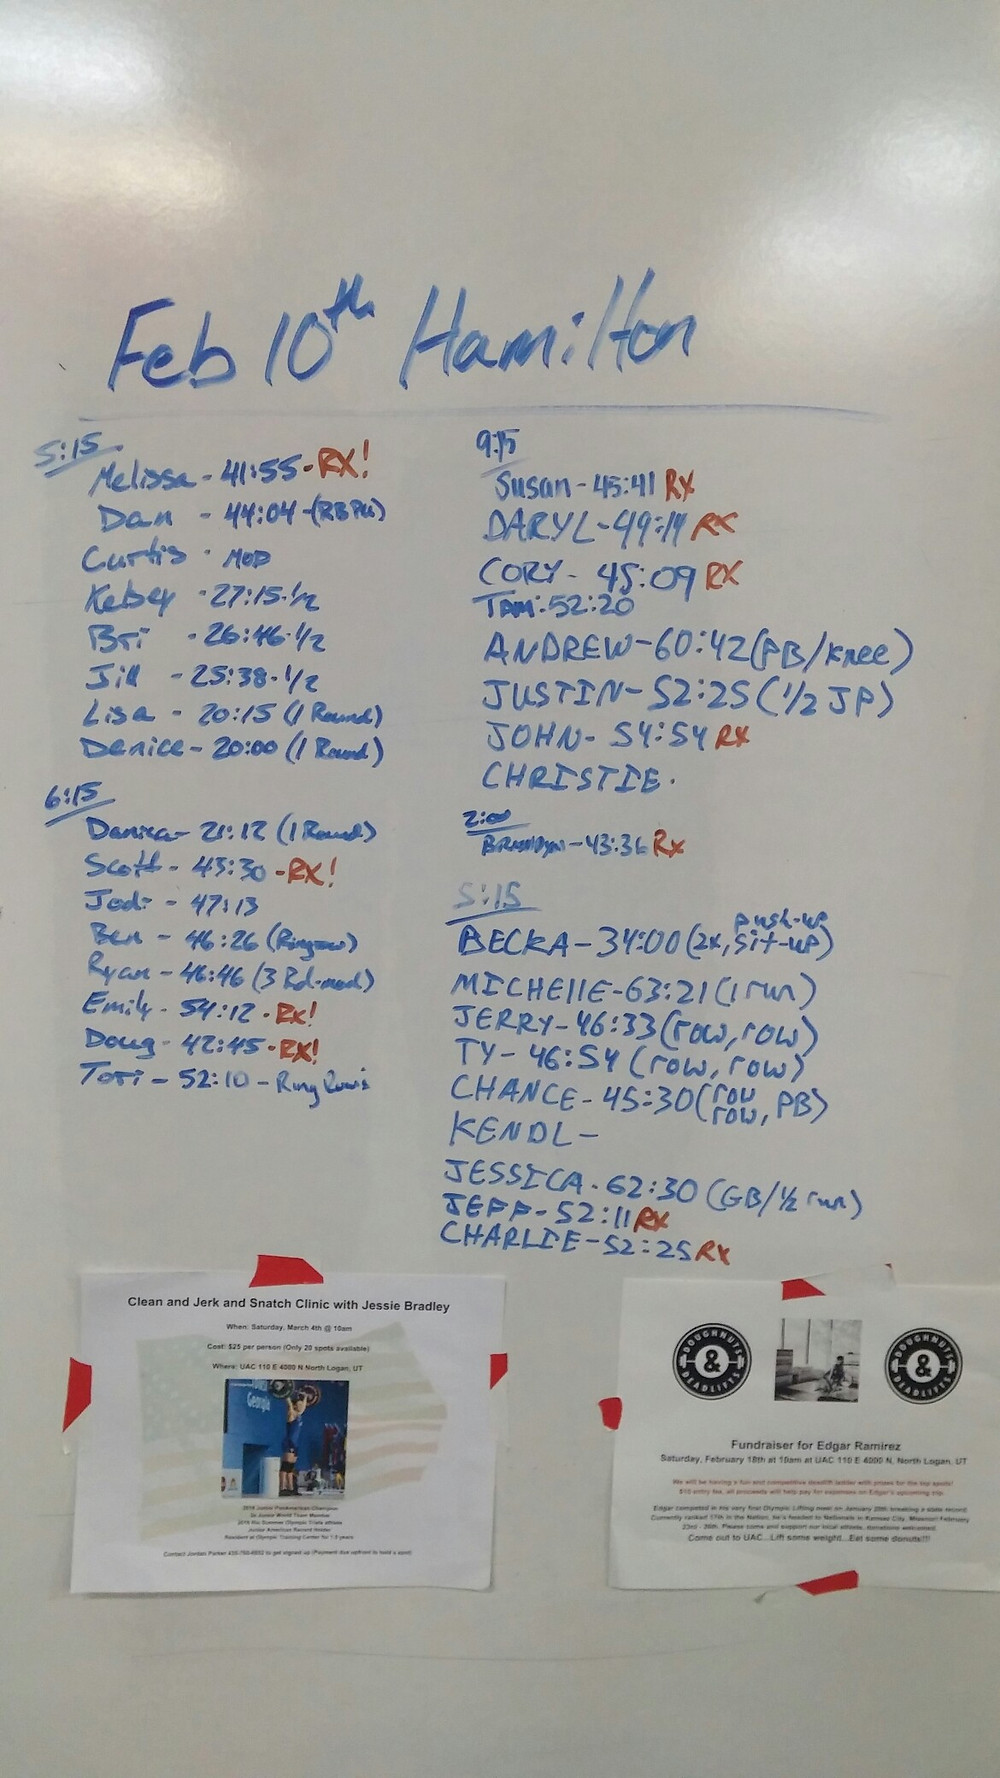 Feb 10th Hamilton
5:15
Melissa - 41:55 - RX!
Dan - 44:04 - (RBPU)
Curtis - MOD
Kelsey - 27:15 - 1/2
Bri - 26:46 - 1/2
Jill - 25:38 - 1/2
Lisa - 20:15 (1 Round)
Denice - 20:00 (1 Round)
6:15
Danica - 21:12 (1 Round)
Scott - 43:30 - RX!
Jodi - 47:13
Ben - 46:26 (Ringrow)
Ryan - 46:46 (3 Rd-mod)
Emily - 54:12 - RX!
Doug - 42:45 - RX!
Tori - 52:10 - Ring Rows
9:15
Susan - 45:41 RX
DARYL - 49:14 RX
CORY - 45:09 RX
TAMI: 52:20
ANDREW - 60:42 (PB/knee)
JUSTIN - 52:25 (1/2 JP)
JOHN - 54:54 RX
CHRISTIE -
2:00
Brandyn - 43:36 RX
5:15
push-up
BECKA - 34:00 (2x, sit-up)
MICHELLE - 63:21 (1 run)
JERRY - 46:33 (row, row)
TY - 46:54 (row, row)
CHANCE - 45:30 (row
row, PB)
KENDL -
JESSICA - 62:30 (GB/1/2 run)
JEFF - 52:11 RX
CHARLIE - 52:25 RX
Clean and Jerk and Snatch Clinic with Jessie Bradley
When: Saturday, March 4th @ 10am
Cost: $25 per person (Only 20 spots available)
Where: UAC 110 E 4000 N North Logan, UT
Georgia
Junior American Record Holder
DOUGHNUTS & DEADLIFTS
DOUGHNUTS & DEADLIFTS
Fundraiser for Edgar Ramirez
Saturday, February 18th at 10am at UAC 110 E 4000 N, North Logan, UT
We will be having a fun and competitive deadlift ladder with prizes for the top spots!
$10 entry fee, all proceeds will help pay for expenses on Edgar's upcoming trip.
Edgar competed in his very first Olympic Lifting meet on January 20th breaking a state record.
Currently ranked 17th in the Nation, he's headed to Nationals in Kansas City, Missouri February
23rd - 26th. Please come and support our local athlete, donations welcomed!
Come out to UAC...Lift some weight...Eat some donuts!!!